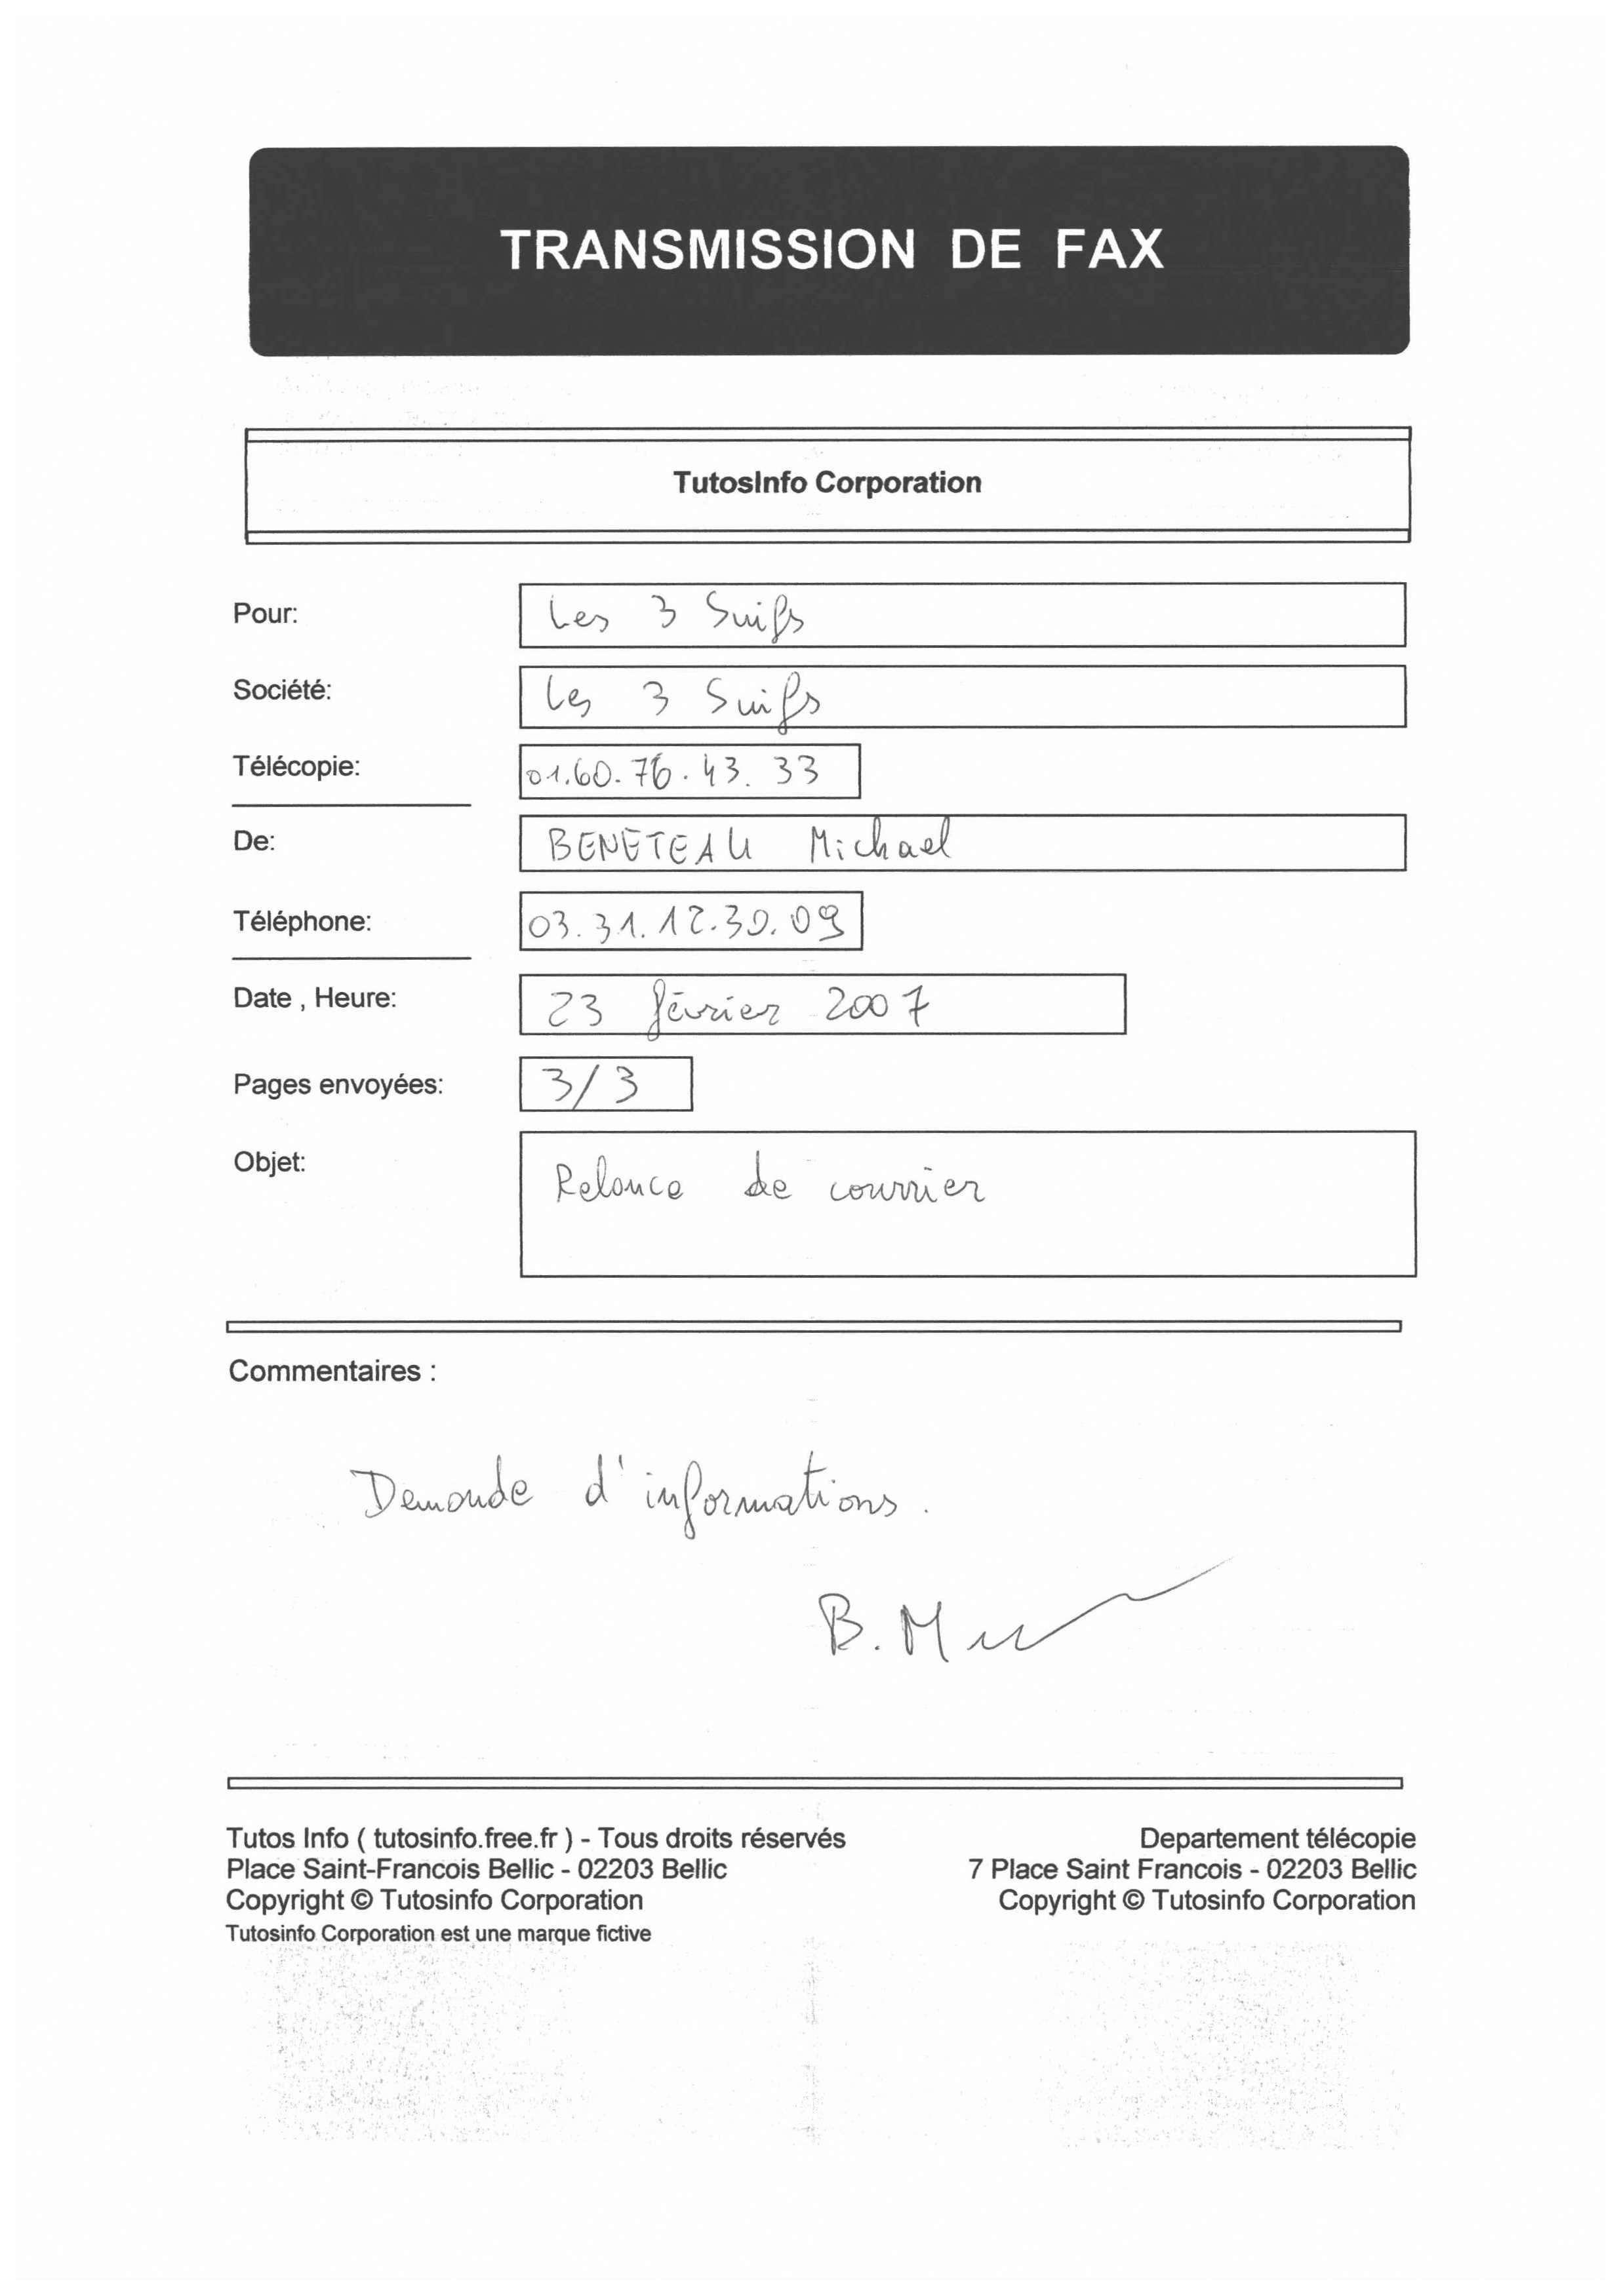 TRANSMISSION DE FAX
TutosInfo Corporation
Pour: Les 3 Suifs
Société: Les 3 Suifs
Télécopie: 01.60.76.43.33
De: BENETEAU Michael
Téléphone: 03.31.12.30.09
Date , Heure: 23 février 2007
Pages envoyées: 3/3
Objet: Relance de courrier
Commentaires :
Demande d'informations.
B. M
Tutos Info ( tutosinfo.free.fr ) - Tous droits réservés
Place Saint-Francois Bellic - 02203 Bellic
Copyright © Tutosinfo Corporation
Tutosinfo Corporation est une marque fictive
Departement télécopie
7 Place Saint Francois - 02203 Bellic
Copyright © Tutosinfo Corporation